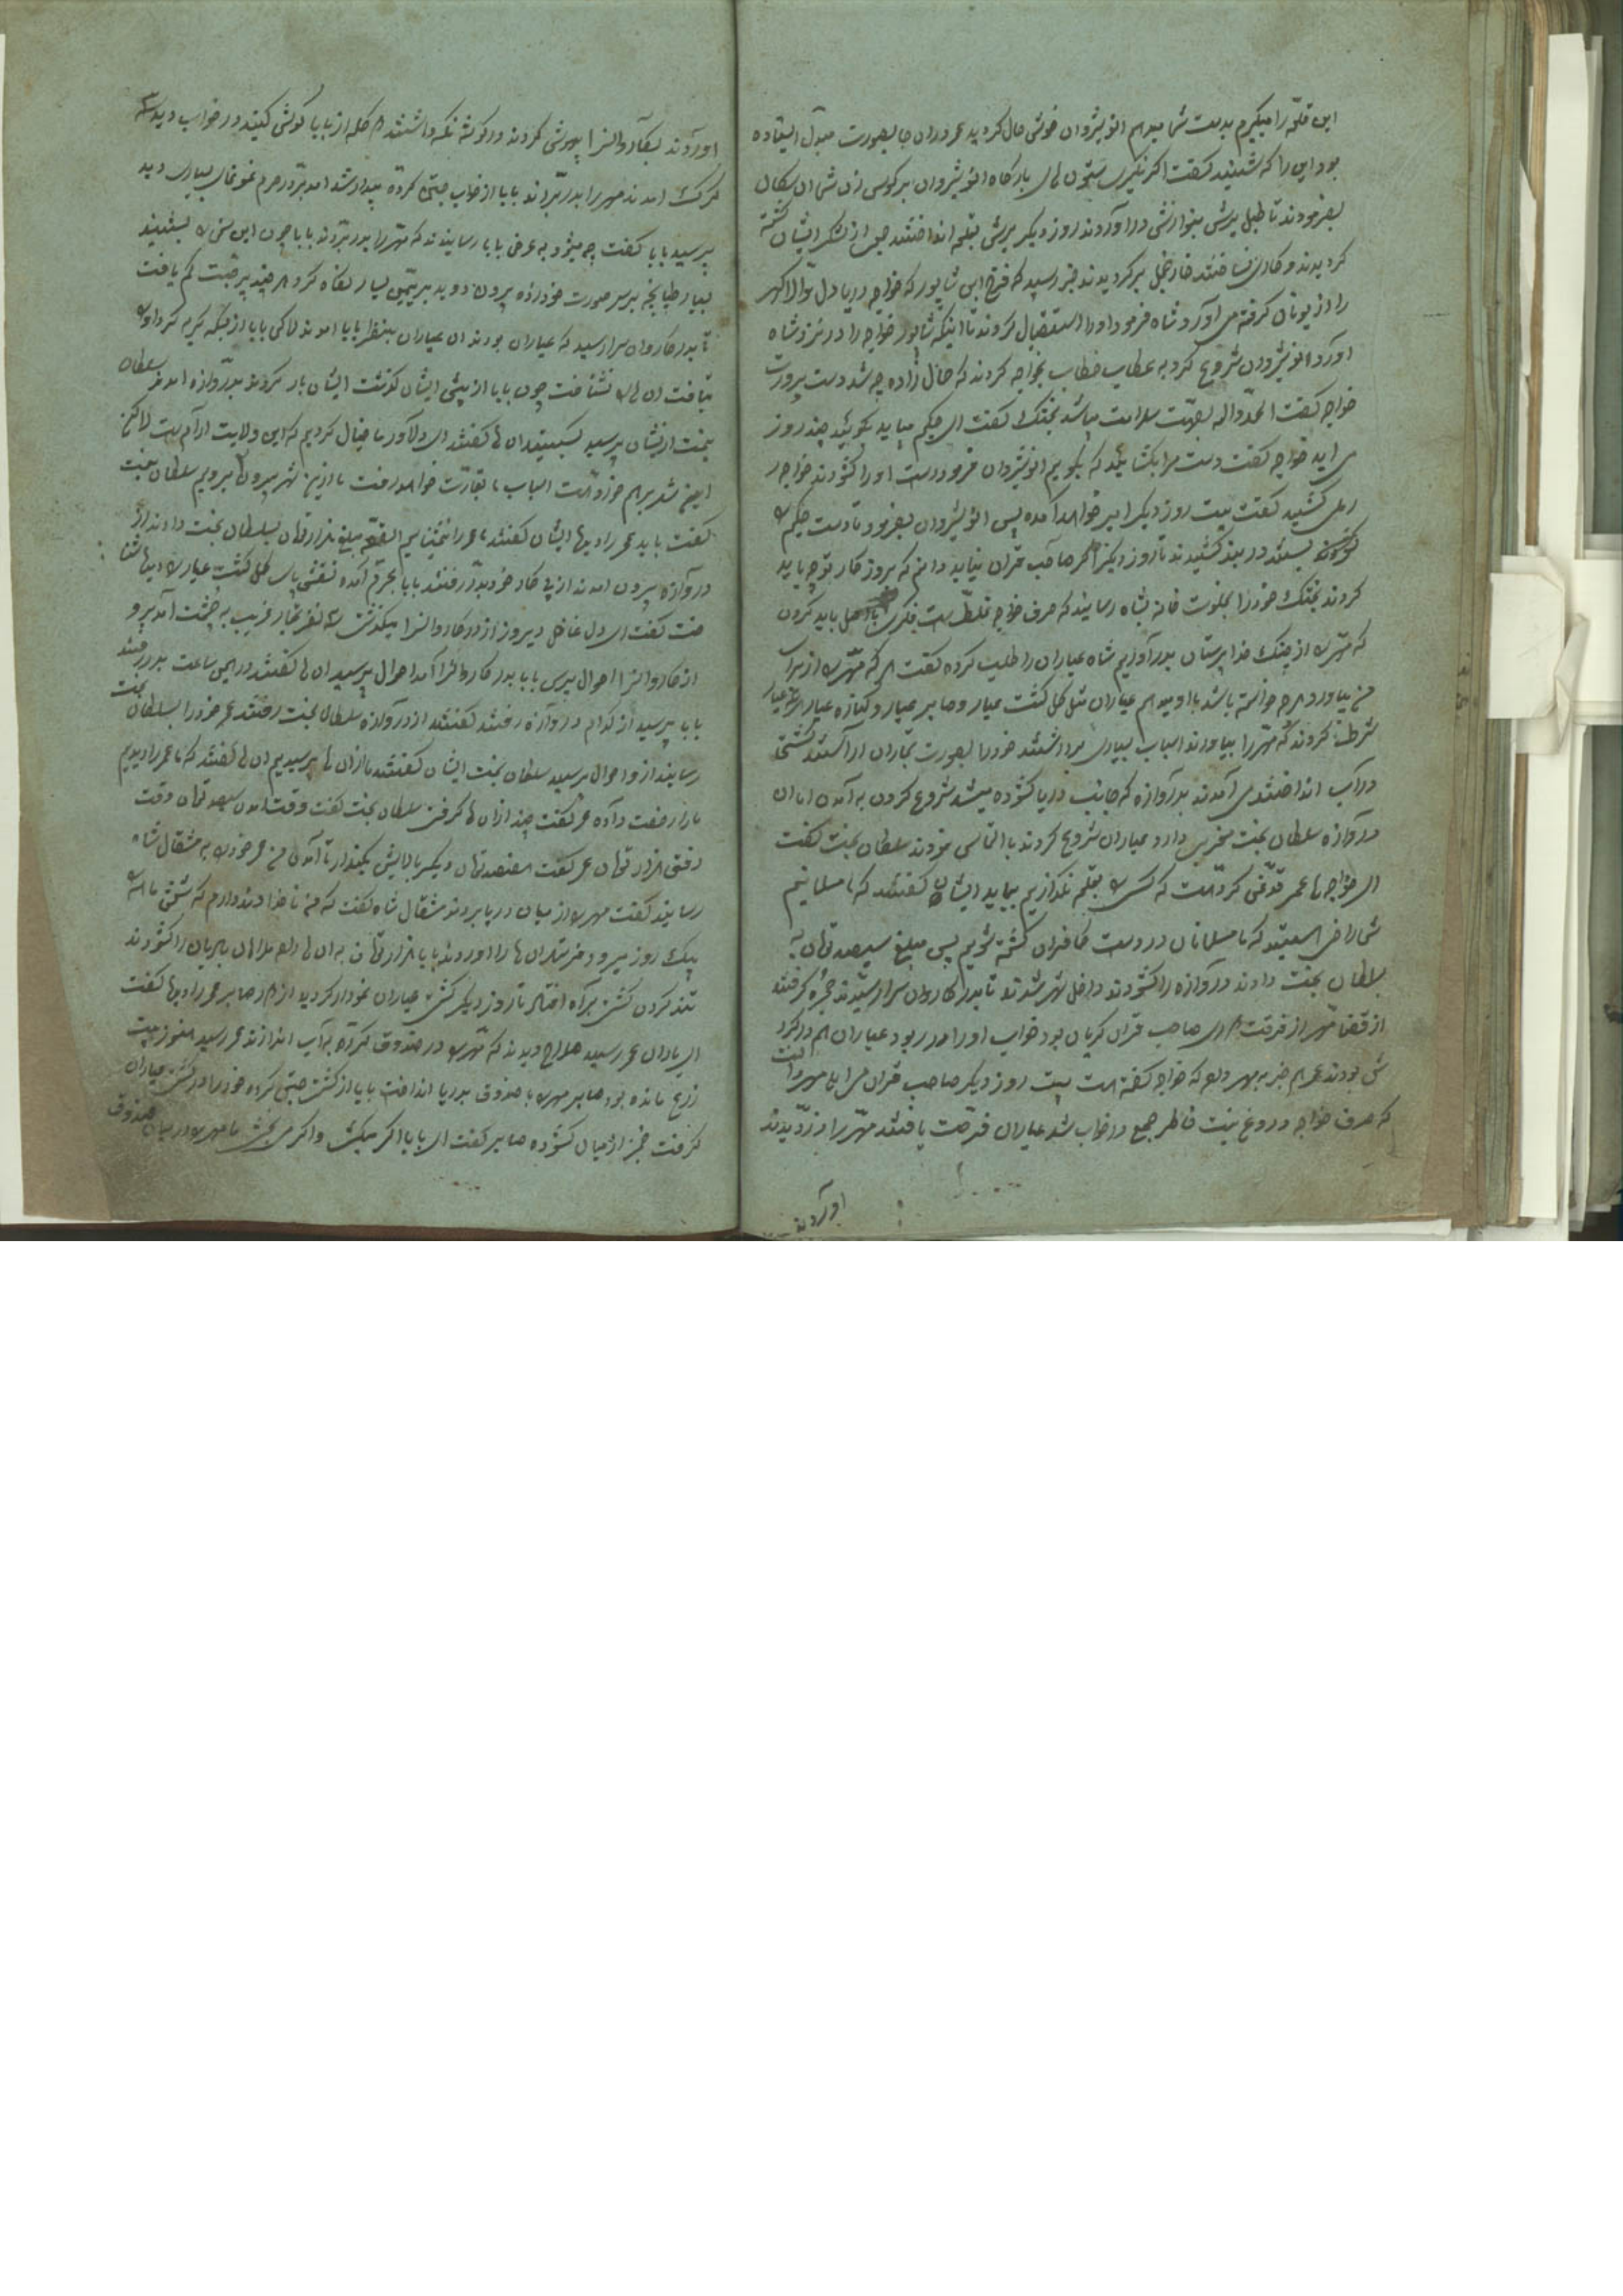 این قلعه را میگیرم بدست شما میدهم انوشیروان خوشی حال کردید عمر دران جا بصورت مبدل ایستاده
بود این را که شنید گفت اگر نگیری ستون های بارگاه انوشیروان بر کوسی زن شما ان سکان
بفرمودند تا طبل یرشی بنوازش دراوردند روز دیگر یرشی بقلعه انداختند جمعی از لشکر ایشان کشته
کردیدند و کاری نساختند برکردیدند خبر رسید که فتح ابن شاپور که خواجه دریا دل والا گهر
را از یونان کرفته می اورد شاه فرمود او را استقبال کردند تا اینکه شاپور خواجه را در نزد شاه
اورد انوشیروان شروع کرد به عطاب خطاب بخواجه کردند که خال زاده چه شد دست پرورت
خواجه گفت الحمد و اله بصحت سلامت میباشد بختک گفت ای حکیم میباید بکوئید چند روز
می اید خواجه گفت دست مرا بکشائید که بکویم انوشیروان فرمود دست او را کشودند خواجه
رمل کشید گفت بیست روز دیگر امیر خواهد آمده پس انوشیروان بفرمود تا دست حکیم را
بستند در بند کشیدند تا روز دیگر اگر صاحب قران نیاید دانم که بروزکار تو چه باید
کردند بختک خود را بخلوت خانه شاه رسانید که حرف خواجه غلط است فکری باید کردن
که مهر را از چنک خداپرستان بدر آوریم شاه عیاران را طلب کرده گفت هر که مهر را از برای
من بیاورد هرچه خواسته باشد باو میدهم عیاران مثل کل کشت عیار و صابر عیار و کناره عیار
شرط کردند که مهر را بیاورند اسباب بسیاری برداشتند خود را بصورت تجاران اراستند کشتی
در آب انداختند می آمدند بدروازه که جانب دریا کشوده میشد شروع کردن به آمدن اما ان
دروازه سلطان بخت مغربی دارد عیاران شروع کردند با التماس نمودند سلطان بخت گفت
ای خواجه ها عمر قدغن کرده است که کسی را بقلعه نکذاریم بیاید ایشان گفتند که ما مسلمانیم
شما راضی هستید که ما مسلمانان در دست کافران کشته شویم پس مبلغ سیصد تومان به
سلطان بخت دادند دروازه را کشودند داخل شهر شدند تا بدر کاروان سرا رسیدند حجره کرفتند
از قضا مهر از فرقت صاحب قران کریان بود خواب او را در ربود عیاران هم در کرد
شی بودند عمر هم خبر بمهر داد که خواجه گفته است بیست روز دیگر صاحب قران می اید مهر دانست
که حرف خواجه دروغ نیست خاطر جمع در خواب شد عیاران فرصت یافتند مهر را دزدیدند
اوردند
اوردند بکاروانسرا بیهوشی کردند در کوشه نکه داشتند کله از بابا کوش کنید در خواب دید که
کرک امدند مهر را بدر بردند بابا از خواب جستن کرده بیدار شد امد بدر حرم غوغای بسیاری دید
پرسید بابا گفت چه میشود به عرض بابا رسانیدند که مهر را بدر بردند بابا چون این سخن را بشنید
بسیار طپانچه بر سر صورت خود زده بیرون دوید بر یمین یسار نکاه کرد هر چند بر جست کم یافت
تا بدر کاروان سرا رسید که عیاران بودند ان عیاران بنظر بابا امدند لاکن بابا از بسکه کریه کرد او را
نیافت ان ها را نشناخت چون بابا از پیش ایشان کذشت ایشان بار کردند بدروازه امدند سلطان
بخت از ایشان پرسید ان ها گفتند ای دلاور ما خیال کردیم که این ولایت ارام است لاکن
ایمن نشدیم هم خود است اسباب ما بغارت خواهد رفت ما ازین شهر بیرون میرویم سلطان بخت
گفت باید عمر را دید ایشان گفتند ما عمر را نمیشناسیم القصه مبلغ هزار تومان بسلطان بخت دادند از
دروازه بیرون امدند از پی کار خود بدر رفتند بابا بحرم آمده نقش پای کل کشت عیار را دید شنا
خت گفت ای دل غافل دیروز از در کاروانسرا میکذشتم سه نفر تجار غریب به چشمت آمد برو
از کاروانسرا احوال بپرس بابا بدر کاروانسرا آمد احوال پرسید ان ها گفتند در همین ساعت بدر رفتند
بابا پرسید از کدام دروازه رفتند گفتند از دروازه سلطان بخت رفتند عمر خود را بسلطان بخت
رسانید از و احوال پرسید سلطان بخت ایشان گفتند ما ازان ها پرسیدیم ان ها گفتند که ما عمر را دیدیم
ما را رخصت داده عمر گفت چند ازان ها کرفتی سلطان بخت گفت وقت امدن سیصد تومان وقت
رفتن هزار تومان عمر گفت هفتصد تومان دیگر بالایش بکذار تا آمدن من عمر خود را به مثقال شاه
رسانید گفت مهر را از میان دریا بردند مثقال شاه گفت که من ناخدا وند دارم که کشتی ما را
بیک روز میبرد و میرساند ان ها را اوردند بابا هزار تومان به ان ها داد ملاحان بادبان را کشودند
تند کردن کشتی براه افتاد تا روز دیگر کشتی عیاران نمودار کردید از دور صابر عمر را دید گفت
ای یاران عمر رسید صلاح دیدند که مهر را در صندوق کرده به آب اندازند عمر رسید هنوز بیست
زرع مانده بود صابر مهر را با صندوق بدریا انداخت بابا از کشتی جستن کرده خود را در کشتی عیاران
کرفت خنجر از میان کشوده صابر گفت ای بابا اکر میکشی و اکر می بخشی ما مهر را در میان صندوق